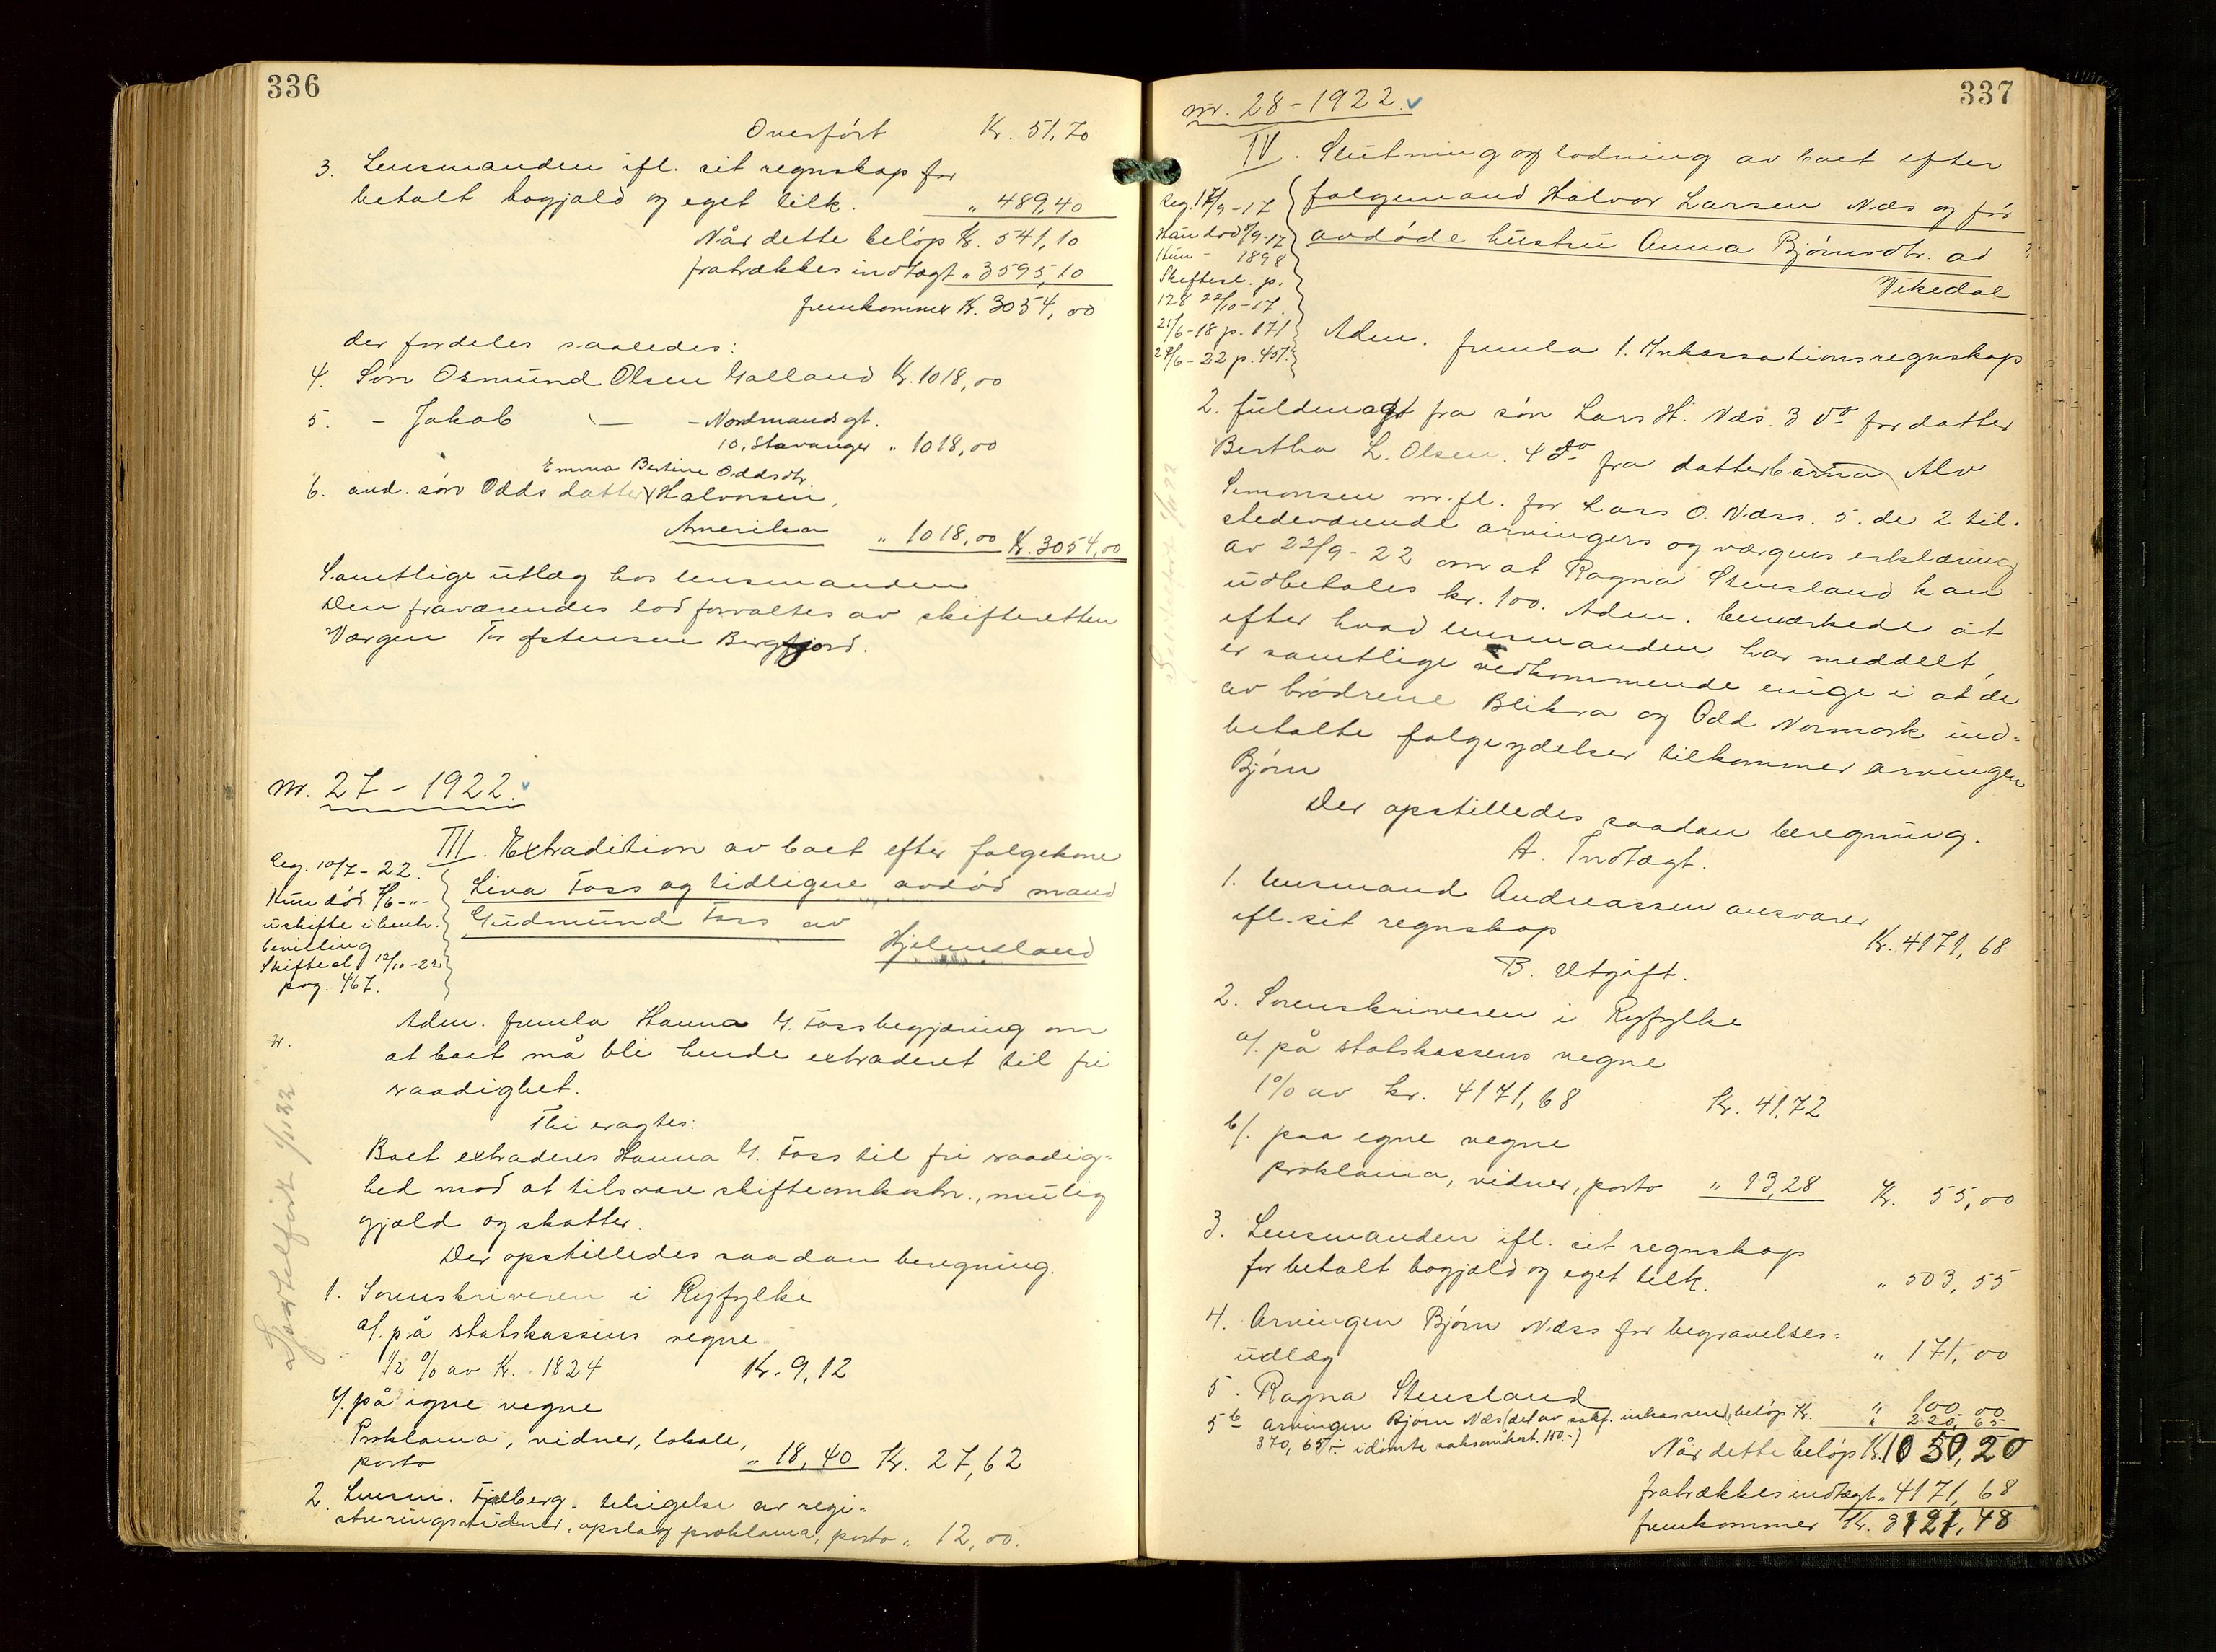 336
Overført Kr. 51,70
3. Lensmanden ifl. sit regnskap for
betalt bogjæld og eget tilk. " 489,40
Når dette beløp Kr. 541,10
fratrækkes indtægt " 3595,10
fremkommer Kr. 3054,00
der fordeles saaledes:
4. Søn Osmund Olsen Halland Kr. 1018,00
5. - Jakob — - Nordmandsgt.
10, Stavanger " 1018,00
Emma Bertine Oddsdtr.
6. avd. søn Odds datter Halvorsen,
Amerika " 1018,00 Kr. 3054,00
Samtlige utlæg hos lensmanden
Den fraværendes lod forvaltes av skifteretten
Værgen Tor Østensen Bergfjord.
nr. 27 - 1922.
III. Extradition av boet efter folgekone
Reg. 10/7 - 22.
Lina Foss og tidligere avdød mand
Hun død 4/6 - " -
Gudmund Foss av
uskifte i henh.
bevilling
Hjelmeland
Skiftesl. 12/10 - 22
pag. 467.
Adm. fremla Hanna G. Foss begjæring om
at boet må bli hende extraderet til fri
raadighet.
Thi eragtes:
Boet extraderes Hanna G. Foss til fri raadig=
hed mod at tilsvare skifteomkostn., mulig
gjæld og skatter.
Der opstilledes saadan beregning.
1. Sorenskriveren i Ryfylke
a/. på statskassens vegne
1/2 % av Kr. 1824 Kr. 9,12
b/. på egne vegne
Proklama, vidner, lokale,
porto " 18,40 Kr. 27,62
2. Lensm. Fjelberg. tilsigelse av regi=
streringsvidner, opslag proklama, porto " 12,00.
337
nr. 28 - 1922.
IV. Slutning og lodning av boet efter
folgemand Halvor Larsen Næs og før
avdøde hustru Anna Bjørnsdtr. ad
Vikedal
Reg. 17/9 - 17
Han død 8/9 - 17
Hun - 1898
Skiftesl. p.
128 22/10 - 17.
21/6 - 18 p. 171
28/6 - 22 p. 457.
Adm. fremla 1. Inkassationsregnskap
2. fuldmagt fra søn Lars H. Næs. 3 do for datter
Bertha L. Olsen. 4 do fra datterbarna Alv
Simonsen m. fl. for Lars O. Næss. 5. de 2 til.
stedeværende arvingers og værgens erklæring
av 22/9 - 22 om at Ragna Stensland kan
udbetales kr. 100. Adm. bemærkede at
efter hvad lensmanden har meddelt,
er samtlige vedkommende enige i at de
av brødrene Blikra og Odd Normork ind=
betalte folgeydelser tilkommer arvingen
Bjørn
Der opstilledes saadan beregning.
A. Indtægt.
1. lensmand Andreassen ansvarer
ifl. sit regnskap Kr. 4171,68
B. Utgift.
2. Sorenskriveren i Ryfylke
a/. på statskassens vegne
1% av kr. 4171,68 Kr. 41,72
b/. paa egne vegne
proklama, vidner, porto " 13,28 Kr. 55,00
3. Lensmanden ifl. sit regnskap
for betalt bogjæld og eget tilk. " 503,55
4. Arvingen Bjørn Næss for begravelses=
udlæg " 171,00
5. Ragna Stensland " 100,00
5 b Arvingen Bjørn Næs (det av sakf. inkasserede beløp Kr. " 220,65
370,65 ÷ idømte saksomkost. 150.-)
Når dette beløp Kr. 1050,20
fratrækkes indtægt " 4171,68
fremkommer Kr. 3121,48